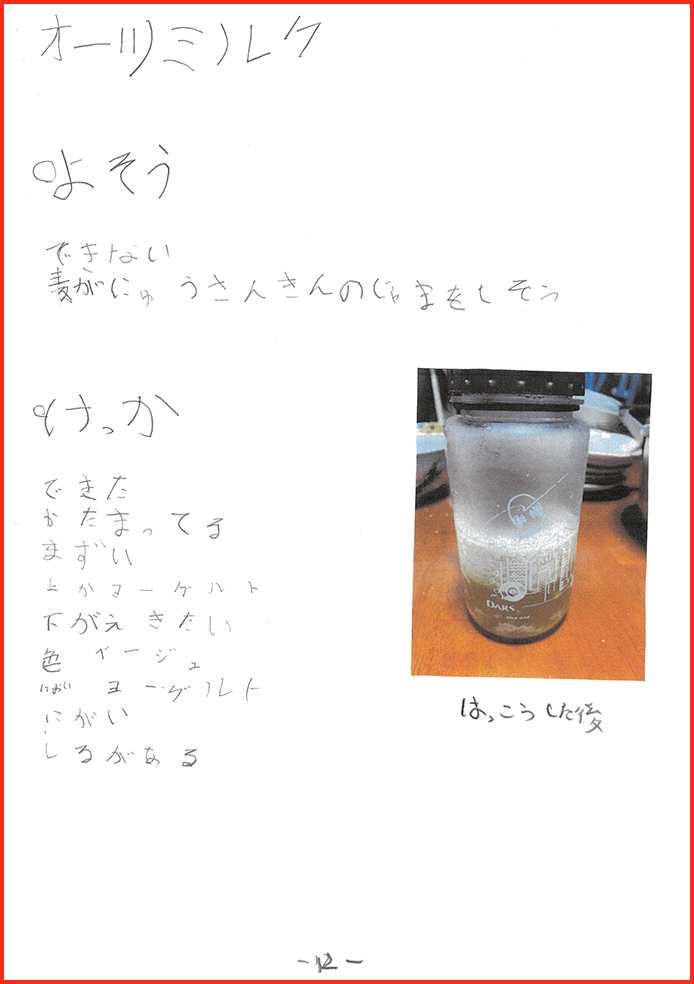 オーツミルク
○よそう
できない
麦がにゅうさんきんのじゃまをしそう
○けっか
できた
かたまってる
まずい
上がヨーグルト
下がえきたい
色 ベージュ
におい ヨーグルト
にがい
しるがある
DARS
はっこうした後
-12-